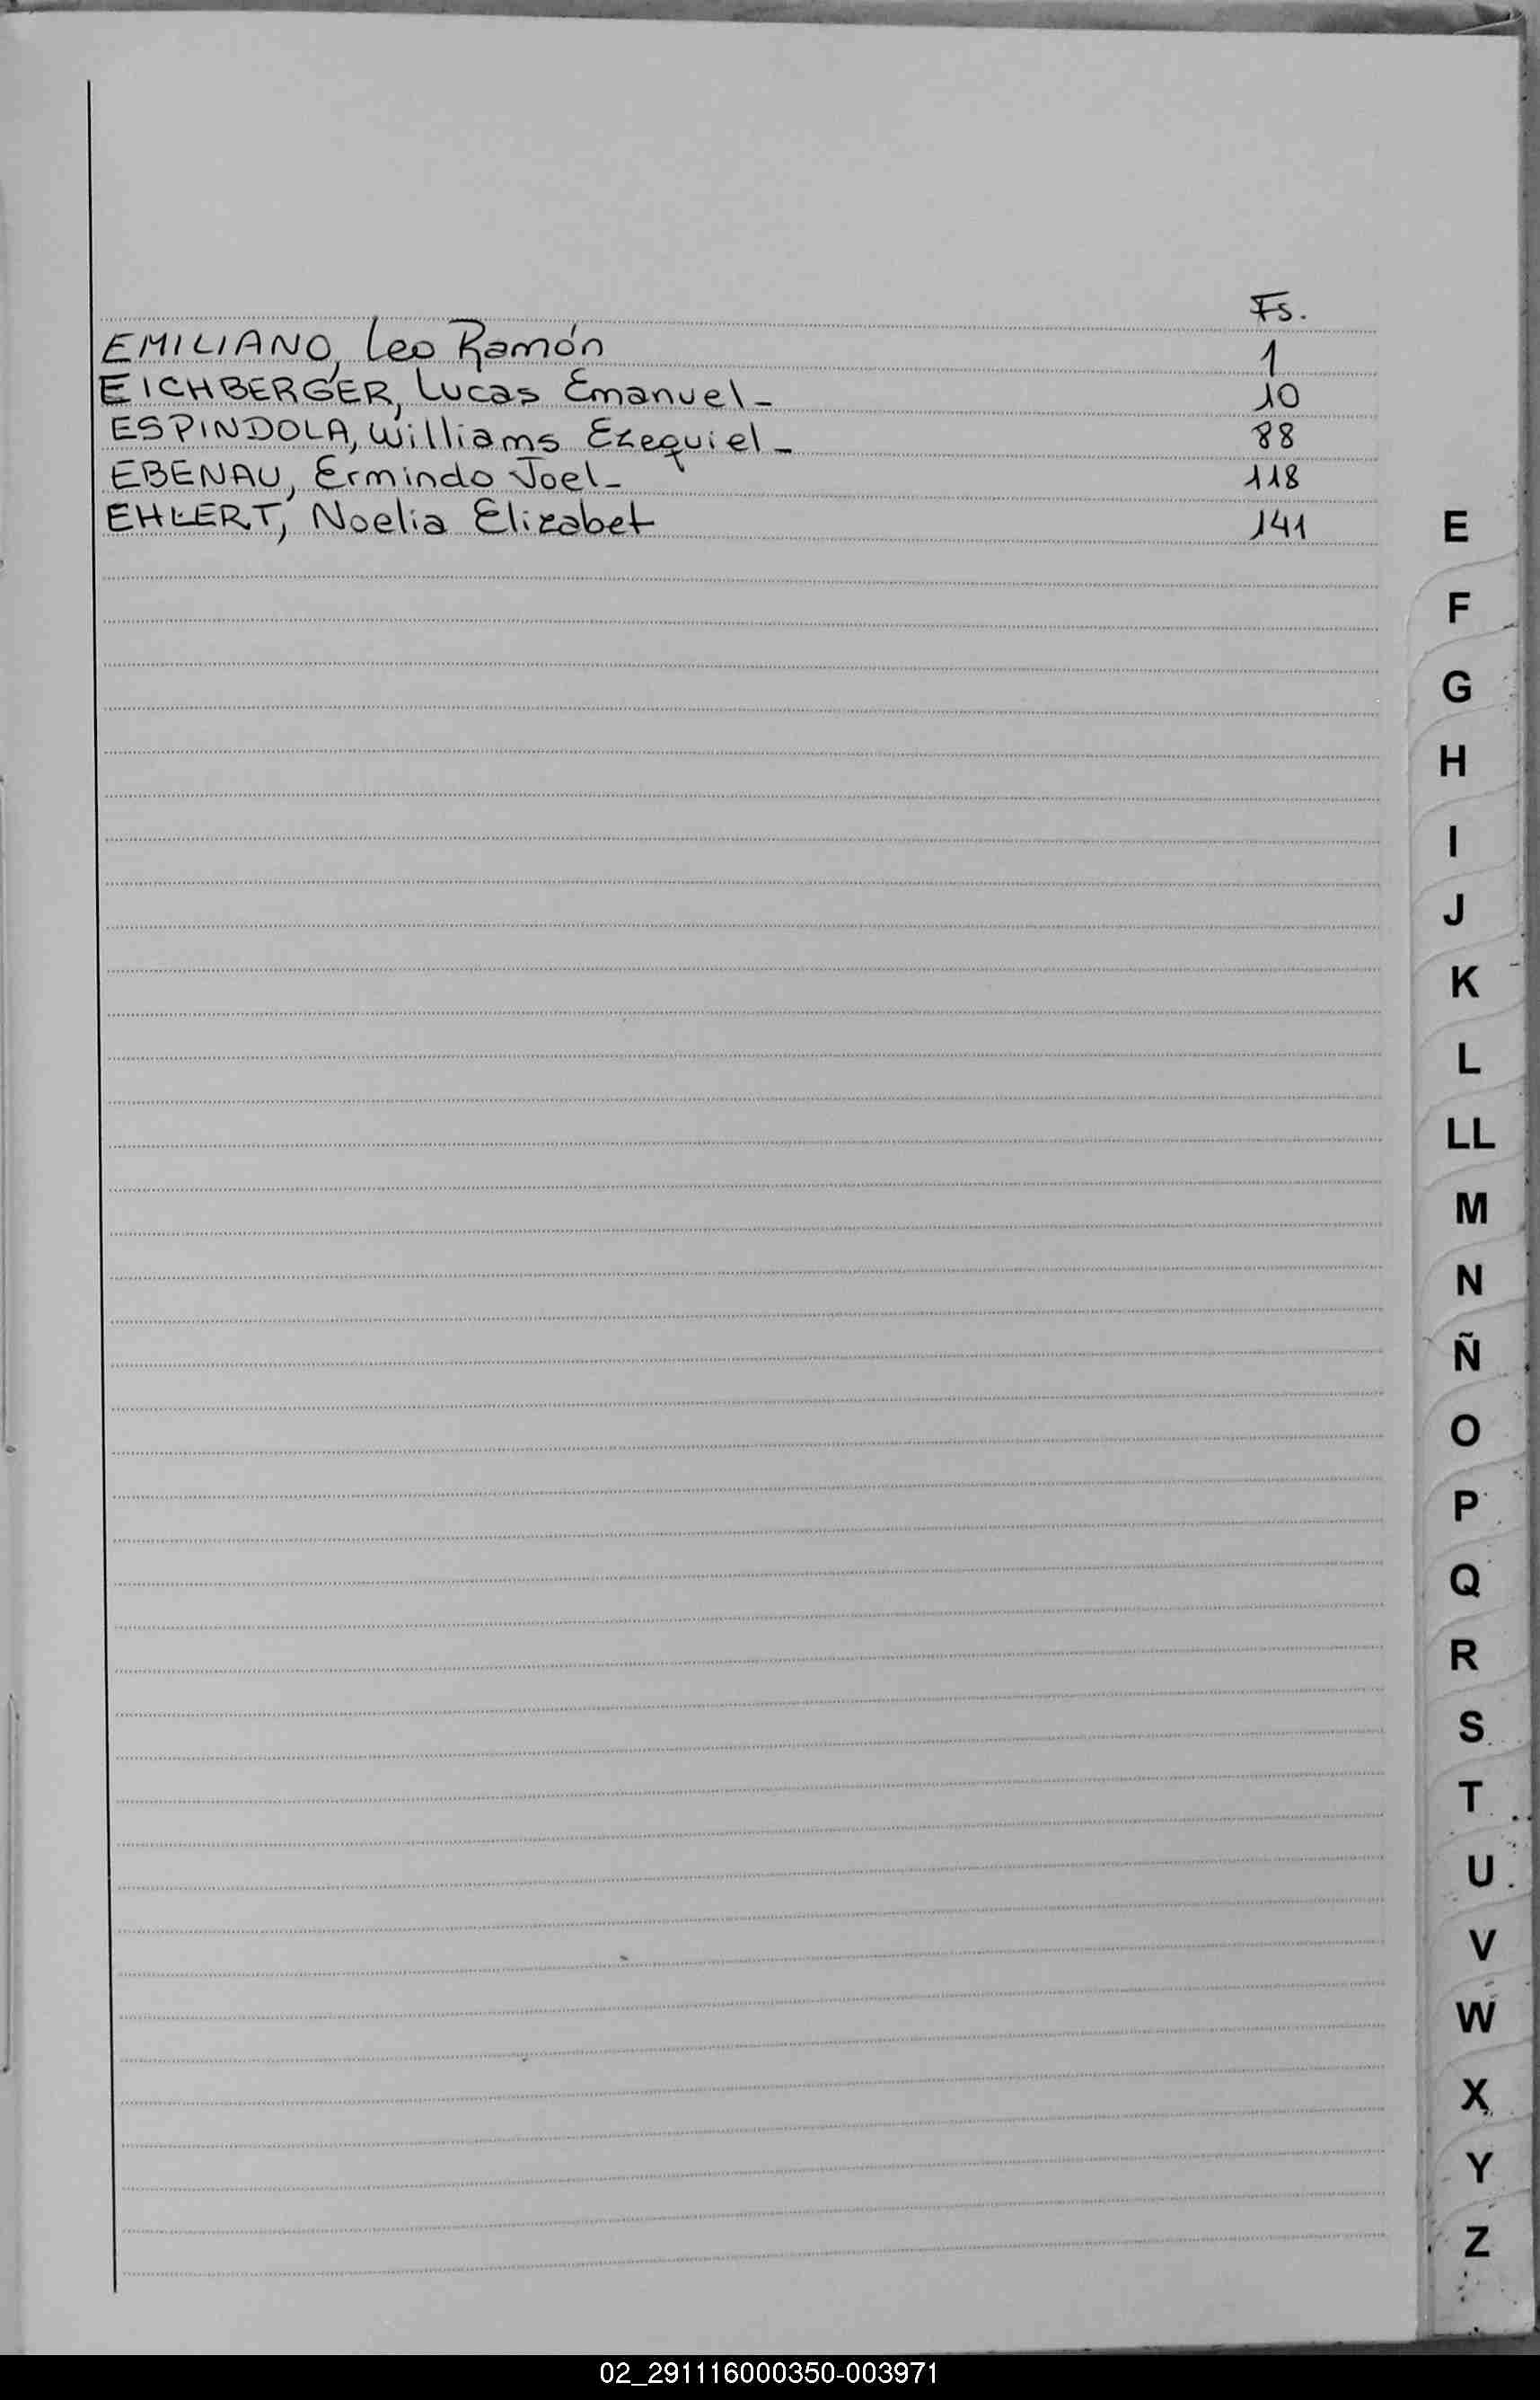 Fs.
EMILIANO, Leo Ramón 1
EICHBERGER, Lucas Emanuel- 10
ESPINDOLA, Williams Ezequiel- 88
EBENAU, Ermindo Joel- 118
EHLERT, Noelia Elizabet 141
E
F
G
H
I
J
K
L
LL
M
N
Ñ
O
P
Q
R
S
T
U
V
W
X
Y
Z
02_291116000350-003971